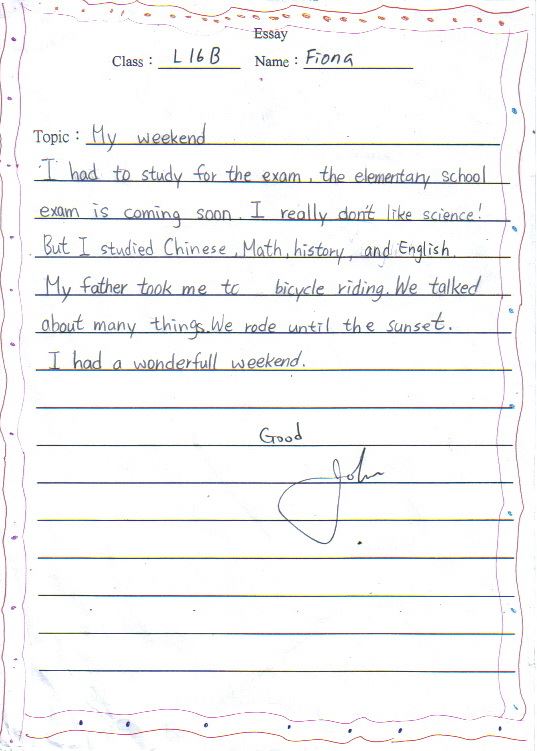 Essay
Class : L16B Name : Fiona
Topic : My weekend
I had to study for the exam, the elementary school
exam is coming soon. I really don't like science!
But I studied Chinese, Math, history, and English.
My father took me to bicycle riding. We talked
about many things. We rode until the sunset.
I had a wonderfull weekend.
Good
John